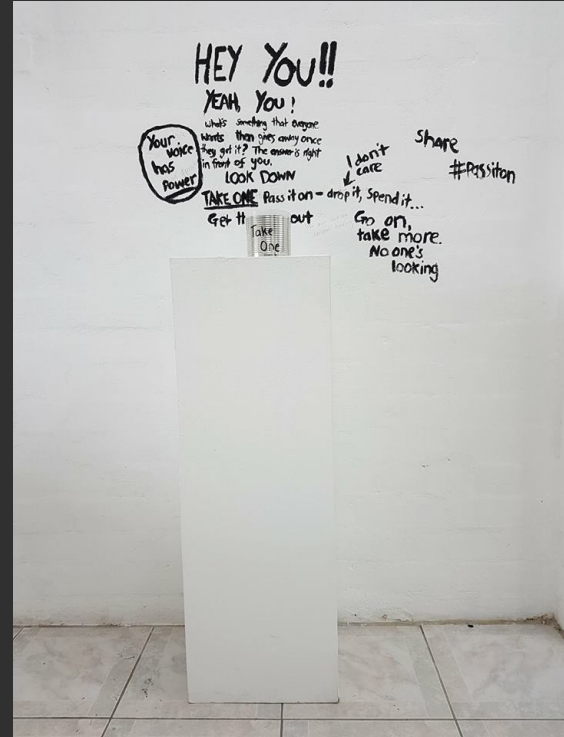 HEY YOU!!
YEAH, YOU!
What's something that everyone
wants then gives away once
they get it? The answer is right
in front of you.
LOOK DOWN
TAKE ONE Pass it on - drop it, Spend it...
Get th out
Your
voice
has
power
I don't
care
Share
#Passiton
Go on,
take more.
No one's
looking
Take
One